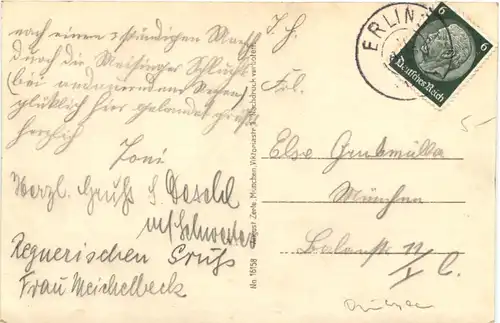 nach einem 3stündigen Marsch
durch die Maisinger Schlucht
(bei andauerndem Regen)
glücklich hier gelandet grüßt
herzlich
Toni
Herzl. Gruß S. Deschl
u. Schwester
Regnerischen Gruß
Frau Meichelbeck
No. 16158
August Zerle, München, Viktoriastr. Nachdruck verboten.
ERLIN
6 6
Deutsches Reich
I. H.
Frl.
Else Grubmüller
München
Balanstr. 11
I l.
5-